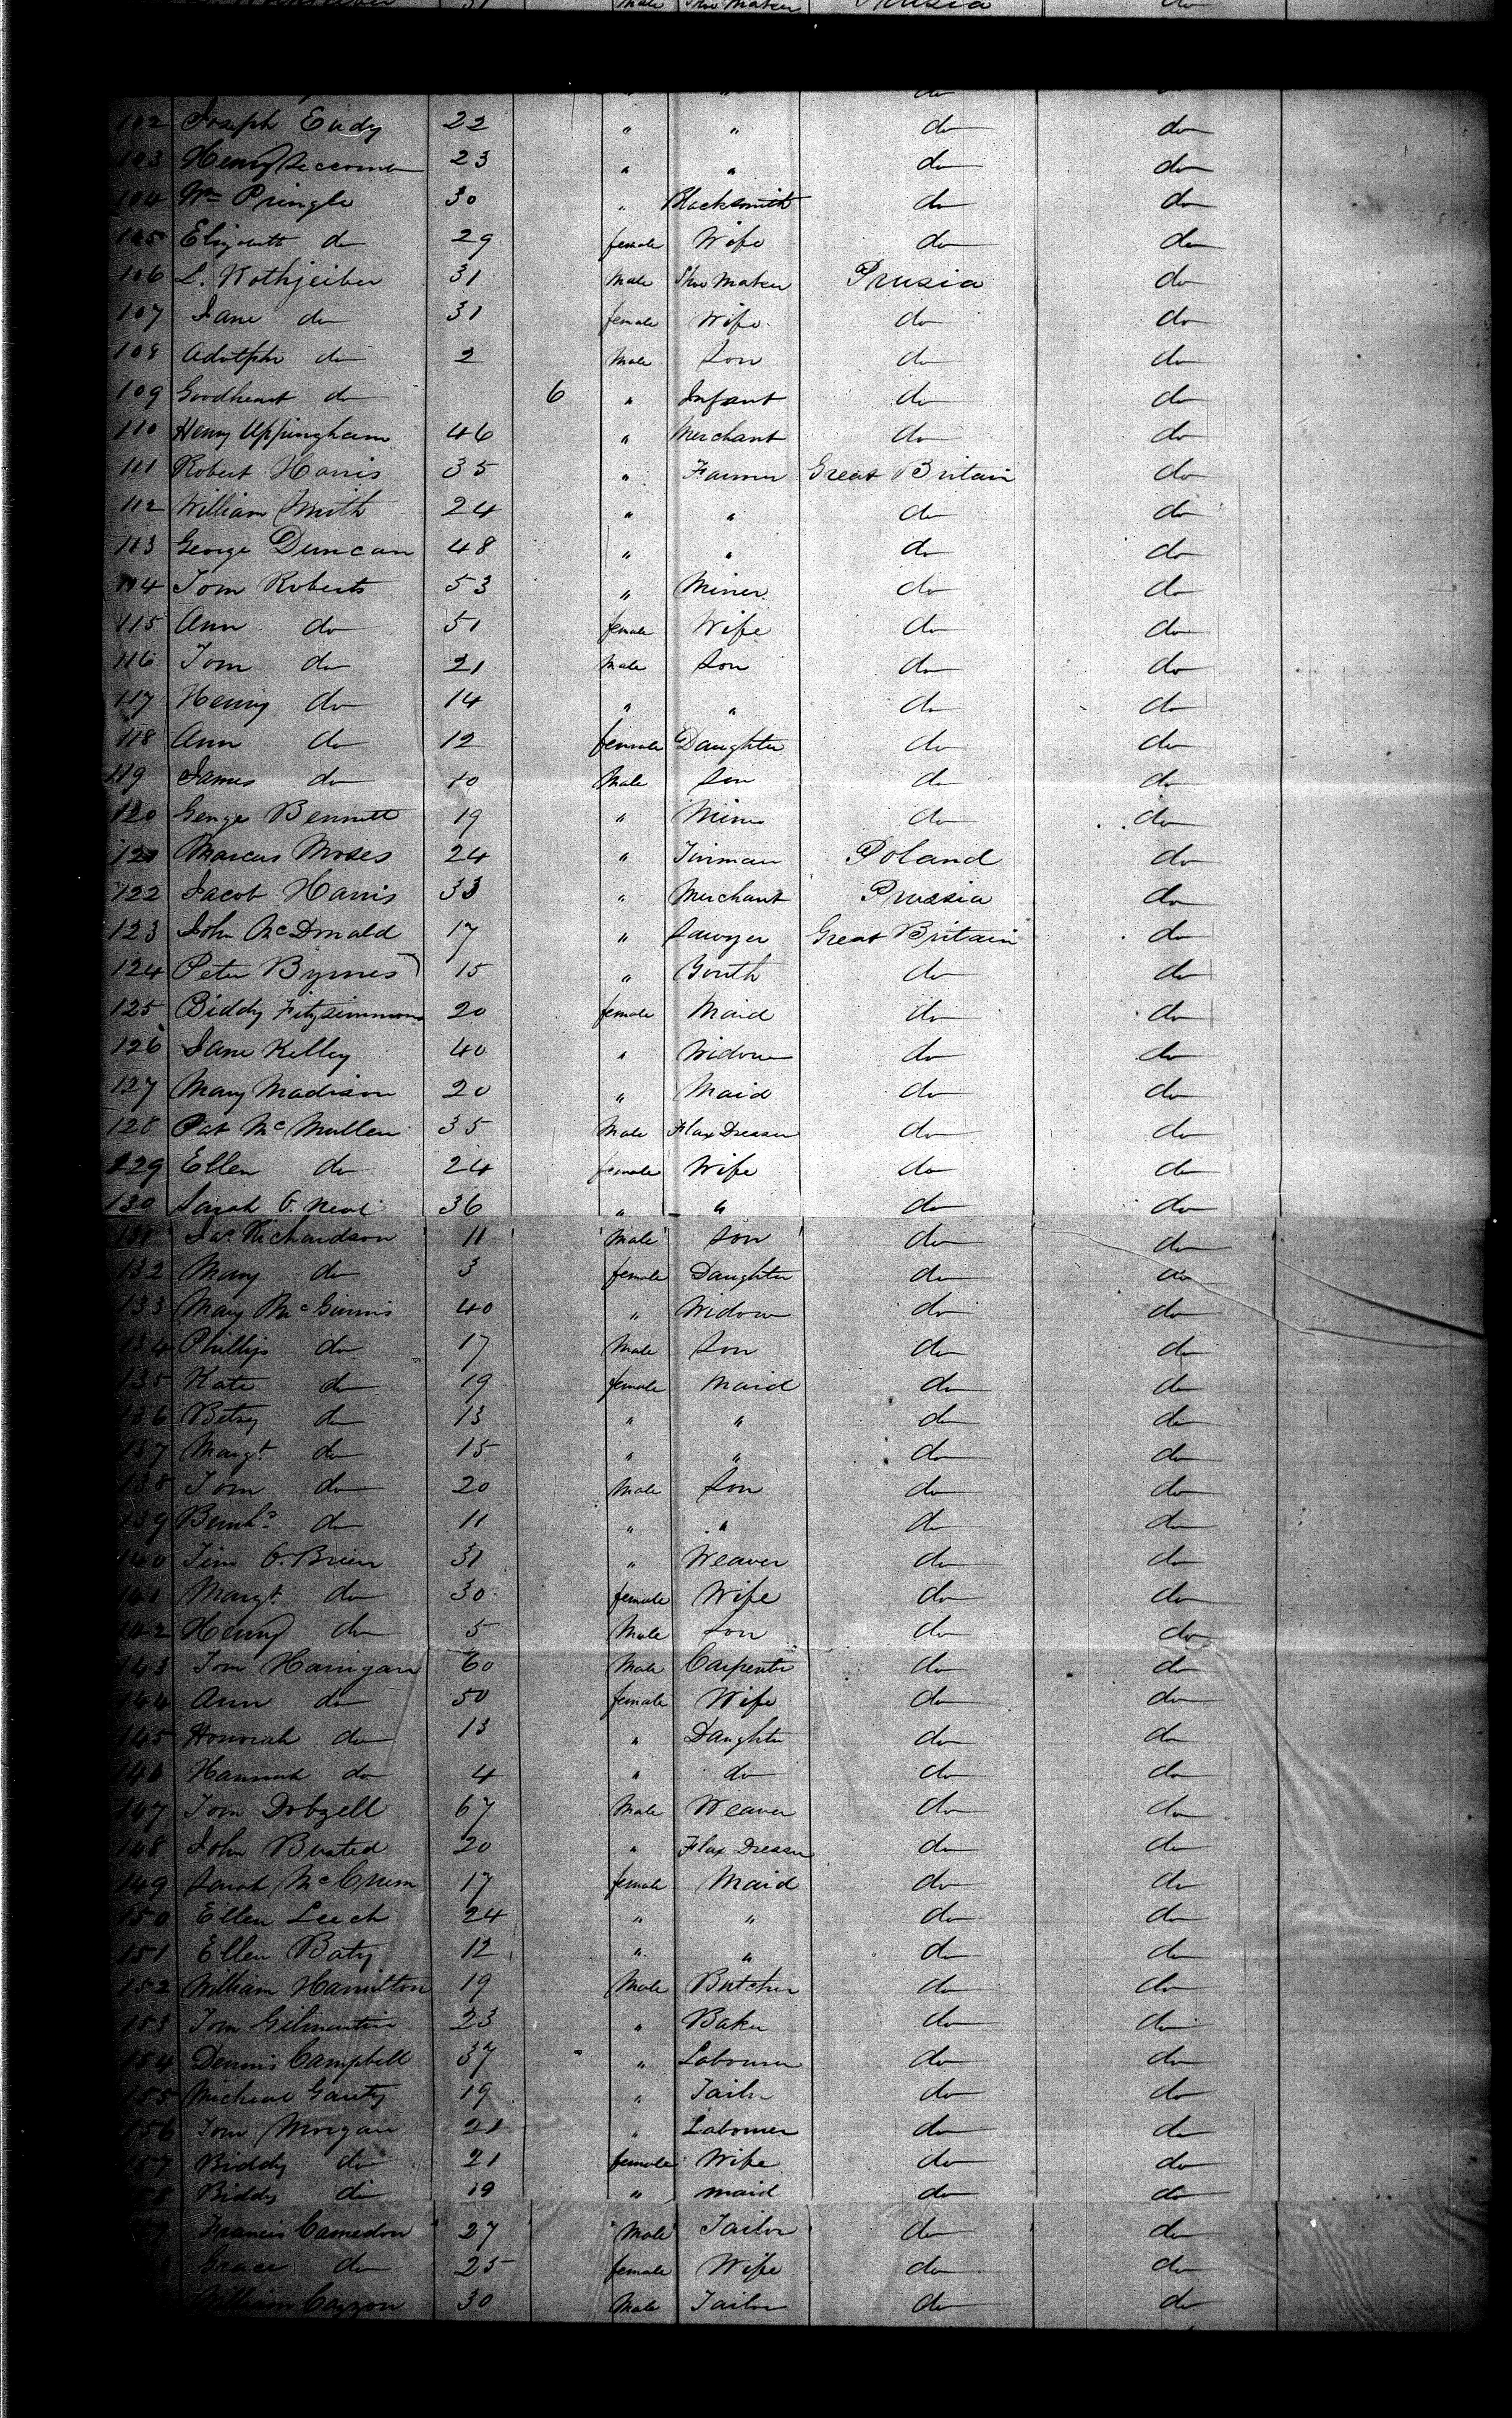 31 Male Shoe Maker Prusia do
do
102 Joseph Eady 22 " " do do
103 Henry Seccomb 23 " " do do
104 Wm Pringle 30 " Blacksmith do do
105 Elizabeth do 29 female Wife do do
106 L. Rothjeiber 31 Male Shoe Maker Prusia do
107 Jane do 31 female Wife do do
108 Adolphe do 2 Male Son do do
109 Goodheart do 6 " Infant do do
110 Henry Uppingham 46 " Merchant do do
111 Robert Harris 35 " Farmer Great Britain do
112 William Smith 24 " " do do
113 George Duncan 48 " " do do
114 Tom Roberts 53 " Miner do do
115 Ann do 51 female Wife do do
116 Tom do 21 Male Son do do
117 Henry do 14 " " do do
118 Ann do 12 female Daughter do do
119 James do 10 Male Son do do
120 George Bennett 19 " Miner do do
121 Marcus Moses 24 " Tinman Poland do
122 Jacob Harris 33 " Merchant Prussia do
123 John McDonald 17 " Sawyer Great Britain do
124 Peter Byrnes 15 " Youth do do
125 Biddy Fitzsimmons 20 female Maid do do
126 Jane Kelley 40 " Widow do do
127 Mary Madison 20 " Maid do do
128 Pat McMullen 35 Male Flax Dresser do do
129 Ellen do 24 female Wife do do
130 Sarah O. Neal 36 " " do do
131 Jas. Richardson 11 Male Son do do
132 Mary do 3 female Daughter do do
133 Mary McGinnis 40 " Widow do do
134 Phillip do 17 Male Son do do
135 Kate do 19 female Maid do do
136 Betsy do 13 " " do do
137 Margt. do 15 " " do do
138 Tom do 20 Male Son do do
139 Bernhd do 11 " " do do
140 Tim O. Brien 31 " Weaver do do
141 Margt. do 30 female Wife do do
142 Henry do 5 Male Son do do
143 Tom Harrigan 60 Male Carpenter do do
144 Ann do 50 female Wife do do
145 Honorah do 13 " Daughter do do
146 Hannah do 4 " do do do
147 Tom Dobzell 67 Male Weaver do do
148 John Busted 20 " Flax Dresser do do
149 Sarah McCrum 17 female Maid do do
150 Ellen Leech 24 " " do do
151 Ellen Baty 12 " " do do
152 William Hamilton 19 Male Butcher do do
153 Tom Gilmartin 23 " Baker do do
154 Dennis Campbell 37 " Labourer do do
155 Micheal Garity 19 " Tailor do do
156 Tom Morgan 21 " Labourer do do
157 Biddy do 21 female Wife do do
158 Biddy do 19 " maid do do
Francis Camedon 27 Male Tailor do do
Grace do 25 female Wife do do
William Cazzon 30 Male Tailor do do